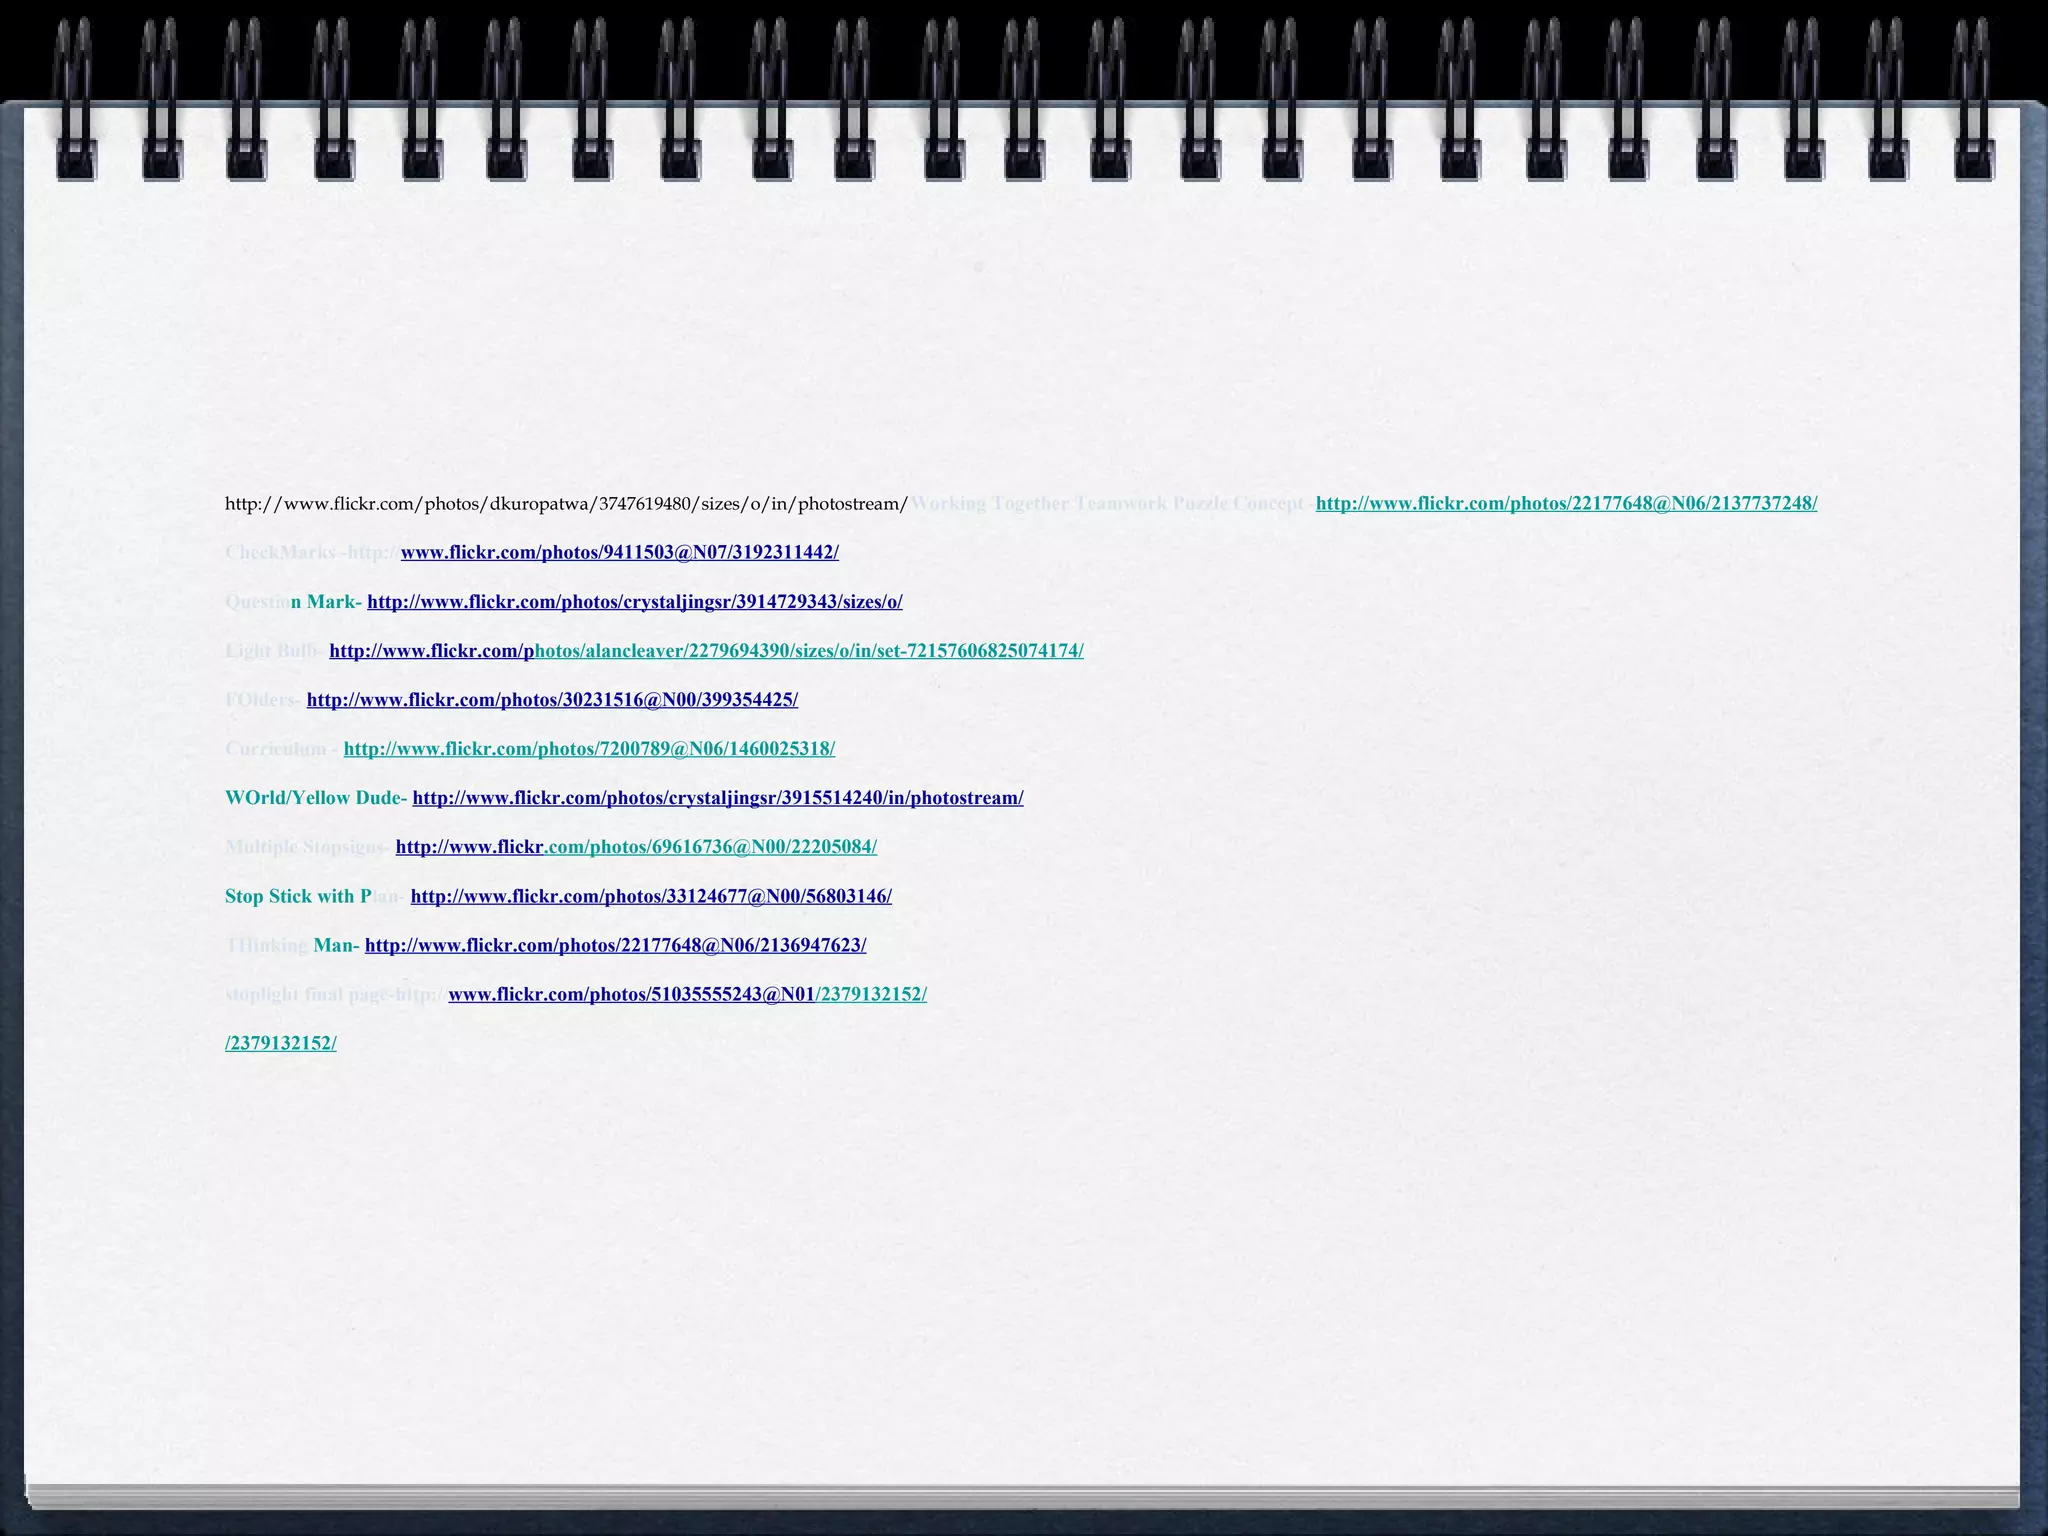 http://www.flickr.com/photos/dkuropatwa/3747619480/sizes/o/in/photostream/Working Together Teamwork Puzzle Concept -http://www.flickr.com/photos/22177648@N06/2137737248/
CheckMarks -http://www.flickr.com/photos/9411503@N07/3192311442/
Question Mark- http://www.flickr.com/photos/crystaljingsr/3914729343/sizes/o/
Light Bulb- http://www.flickr.com/photos/alancleaver/2279694390/sizes/o/in/set-72157606825074174/
FOlders- http://www.flickr.com/photos/30231516@N00/399354425/
Curriculum - http://www.flickr.com/photos/7200789@N06/1460025318/
WOrld/Yellow Dude- http://www.flickr.com/photos/crystaljingsr/3915514240/in/photostream/
Multiple Stopsigns- http://www.flickr.com/photos/69616736@N00/22205084/
Stop Stick with Plan- http://www.flickr.com/photos/33124677@N00/56803146/
THinking Man- http://www.flickr.com/photos/22177648@N06/2136947623/
stoplight final page-http://www.flickr.com/photos/51035555243@N01/2379132152/
/2379132152/